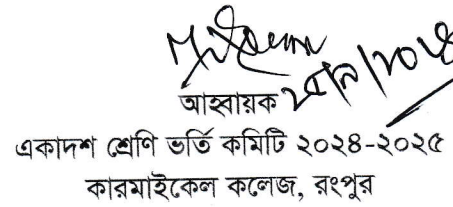 আহ্বায়ক
একাদশ শ্রেণি ভর্তি কমিটি ২০২৪-২০২৫
কারমাইকেল কলেজ, রংপুর